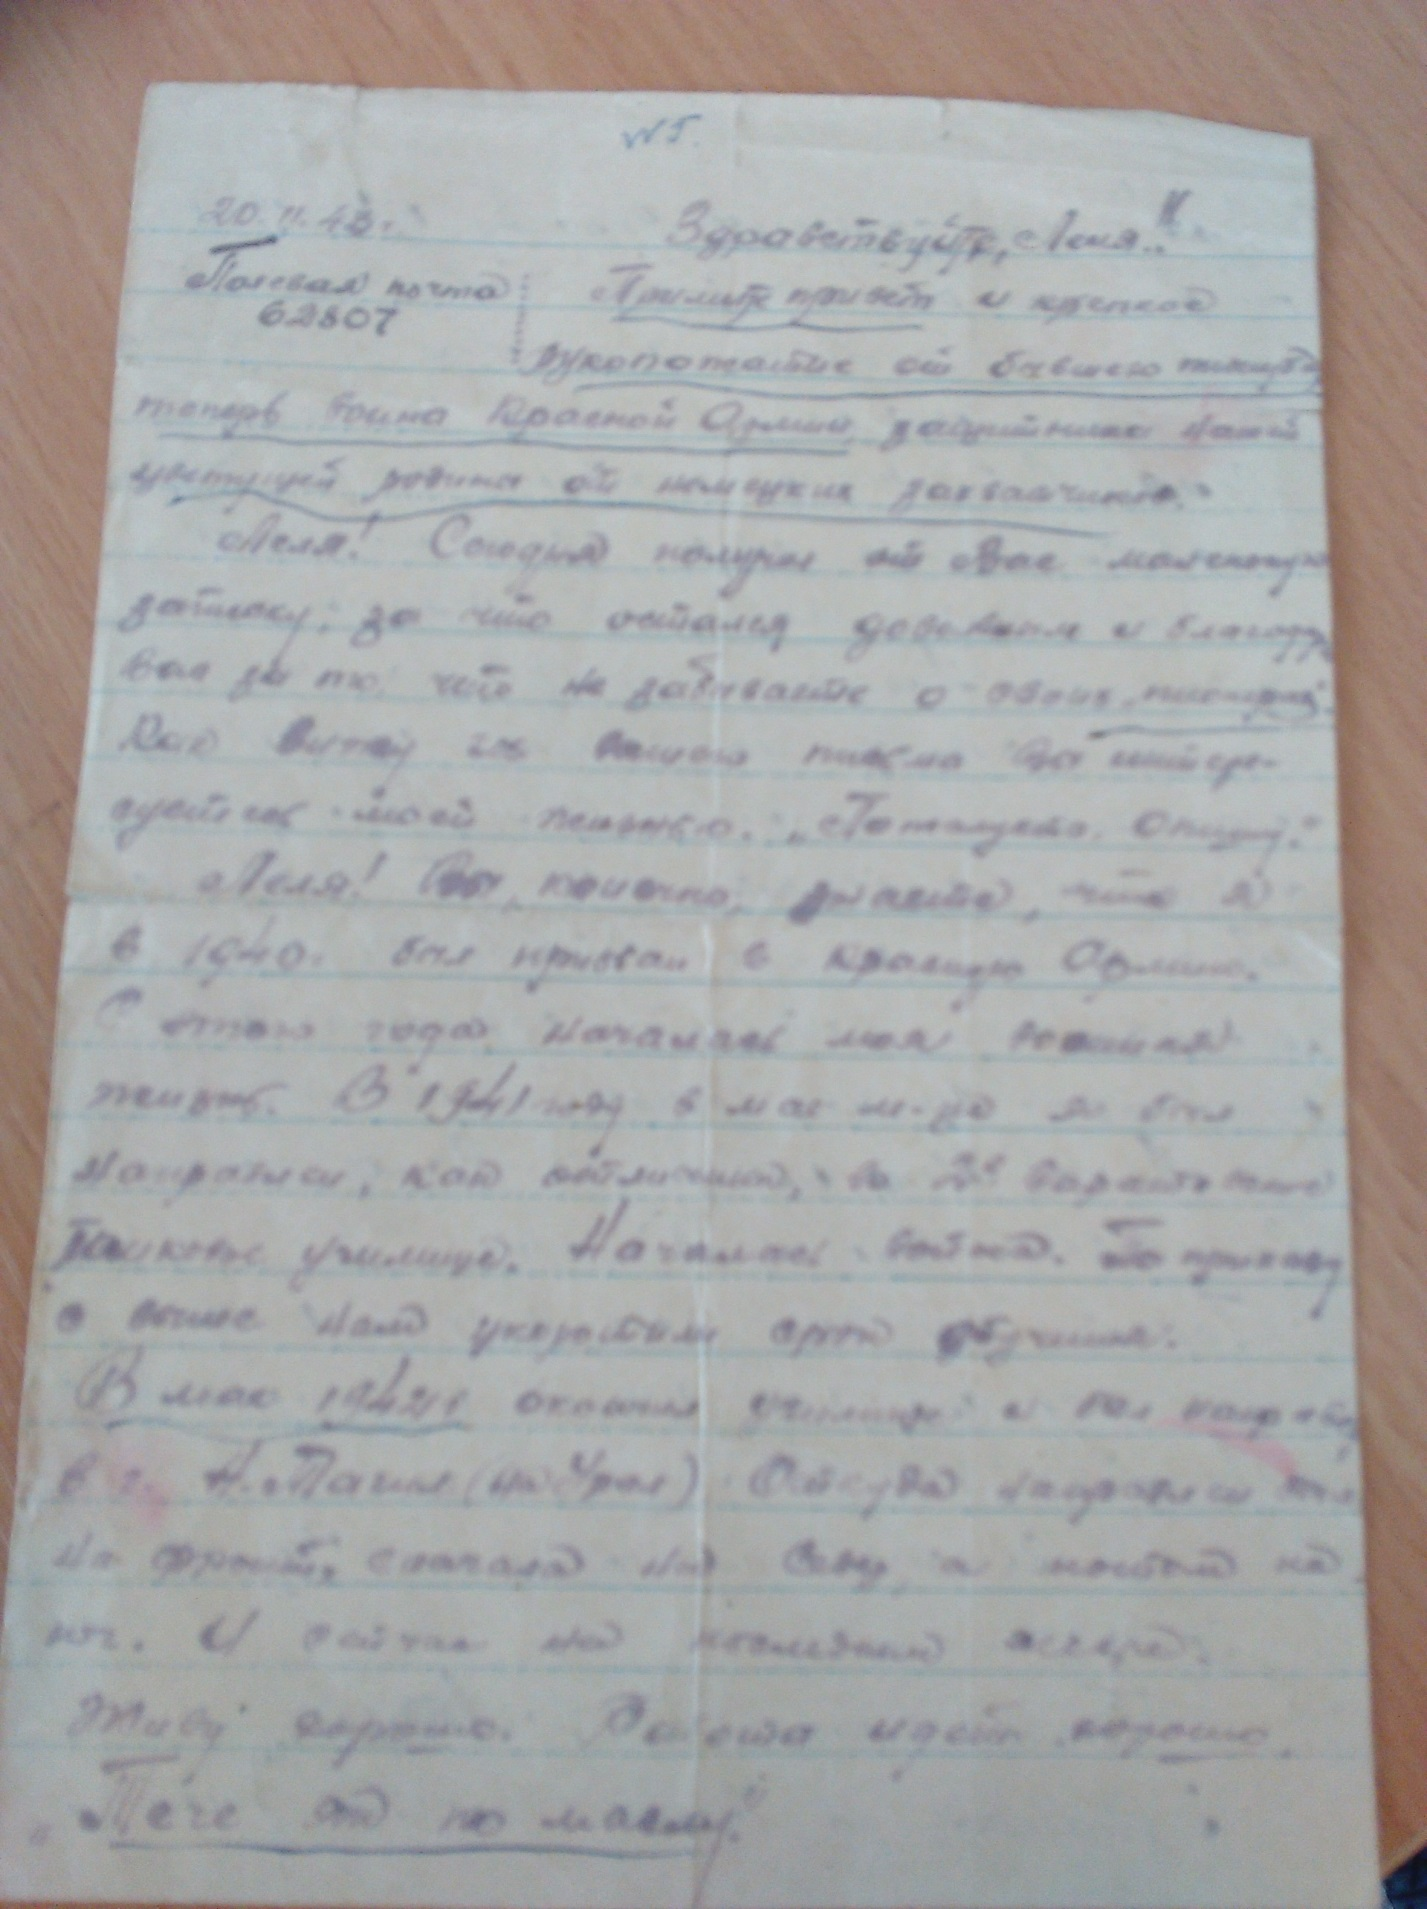 20.11.43г.
Здравствуйте, Леля.."
Полевая почта
62807
Примите привет и крепкое
рукопожатие от бывшего
теперь воина Красной Армии, защитника нашей
цветущей родины от немецких захватчиков.
Леля! Сегодня получил от Вас маленькую
записку, за что остался довольным и благодарю
Вас за то, что не забываете о своих
Как вижу из вашего письма Вы интере-
суетесь моей жизнью. „Пожалуйста. Опишу."
Леля! Вы, конечно, знаете, что я
в 1940г. был призван в Красную Армию.
С этого года началась моя военная
жизнь. В 1941 году в мае м-це я был
направлен, как отличник, во 2е
танковое училище. Началась война. По приказу
свыше нам укоротили срок обучения.
В мае 1942г окончил училище и был направлен
в г. Н. Тагил (на Урал) Отсюда направлен был
на фронт, сначала на Север, а потом на
юг. И сейчас на последнем
Живу хорошо. Работа идет хорошо.
„Тече як по маслу."